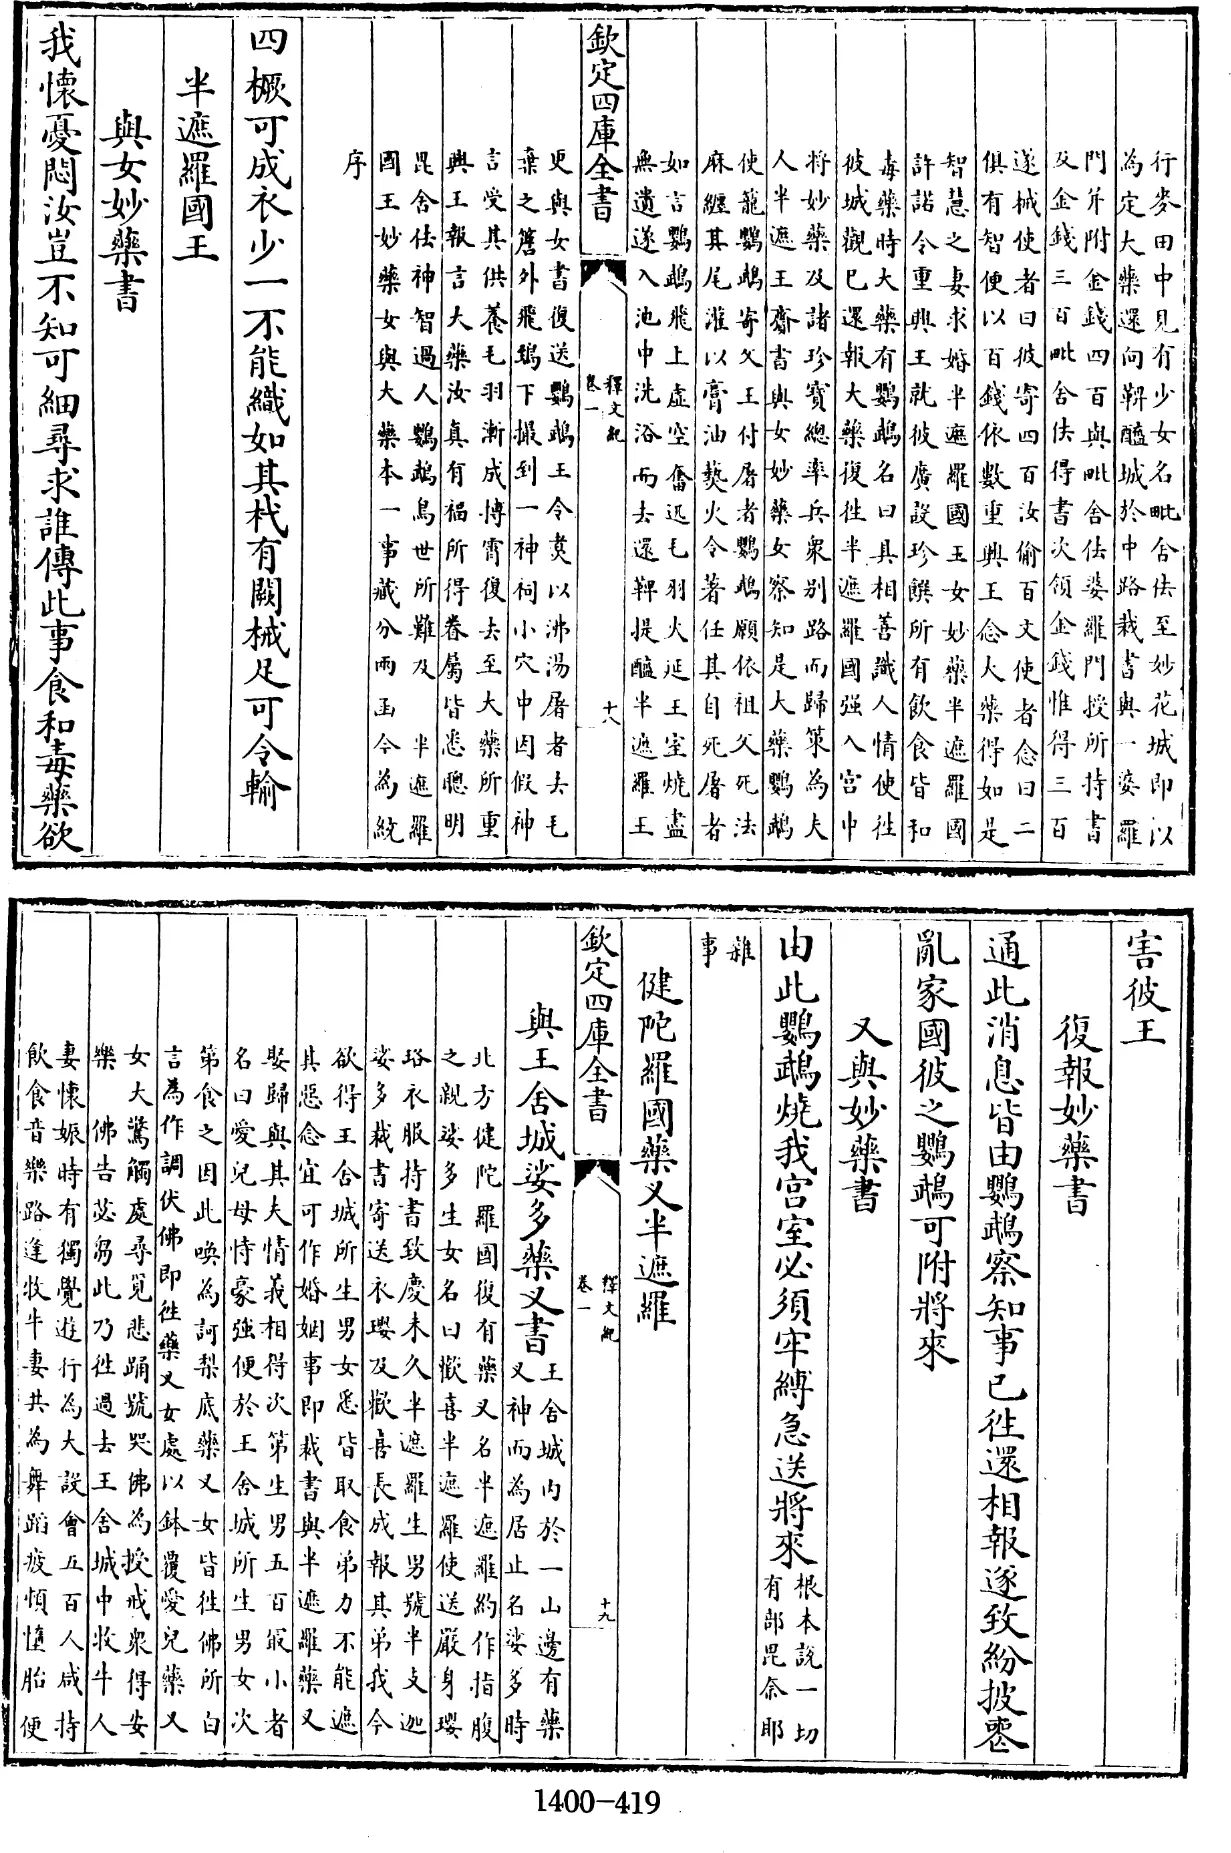 行麥田中見有少女名毗舍佉至妙花城即以
為定大藥還向鞞醯城於中路裁書與一婆羅
門并附金錢四百與毗舍佉婆羅門授所持書
及金錢三百毗舍佉得書次領金錢惟得三百
遂械使者曰彼寄四百汝偷百文使者念曰二
俱有智便以百錢依數重與王念大藥得如是
智慧之妻求婚半遮羅國王女妙藥半遮羅國
許諾令重興王就彼廣設珍饌所有飲食皆和
毒藥時大藥有鸚鵡名曰具相善識人情使往
彼城觀已還報大藥復往半遮羅國强入宮中
將妙藥及諸珍寶總率兵眾别路而歸策為夫
人半遮王齎書與女妙藥女察知是大藥鸚鵡
使籠鸚鵡寄父王付屠者鸚鵡願依祖父死法
麻纏其尾灌以膏油爇火令著任其自死屠者
如言鸚鵡飛上虛空奮迅毛羽火延王室燒盡
無遺遂入池中洗浴而去還鞞提醯半遮羅王
欽定四庫全書
釋文紀
卷一
十八
更與女書復送鸚鵡王令煑以沸湯屠者去毛
棄之簷外飛鵄下撮到一神祠小穴中因假神
言受其供養毛羽漸成博霄復去至大藥所重
興王報言大藥汝真有福所得眷屬皆悉聰明
毘舍佉神智過人鸚鵡鳥世所難及 半遮羅
國王妙藥女與大藥本一事藏分兩函今為統
序
四橛可成衣少一不能織如其杙有闕械足可令輸
半遮羅國王
與女妙藥書
我懐憂悶汝豈不知可細尋求誰傳此事食和毒藥欲
害彼王
復報妙藥書
通此消息皆由鸚鵡察知事已往還相報遂致紛披壞
亂家國彼之鸚鵡可附將來
又與妙藥書
由此鸚鵡燒我宫室必須牢縛急送將來
根本說一切
有部毘奈耶
雜
事
健陀羅國藥义半遮羅
欽定四庫全書
釋文紀
卷一
十九
與王舍城娑多藥义書
王舍城内於一山邊有藥
义神而為居止名娑多時
北方健陀羅國復有藥义名半遮羅約作指腹
之親娑多生女名曰歡喜半遮羅使送嚴身瓔
珞衣服持書致慶未久半遮羅生男號半支迦
娑多裁書寄送衣瓔及歡喜長成報其弟我今
欲得王舍城所生男女悉皆取食弟力不能遮
其惡念宜可作婚姻事即裁書與半遮羅藥义
娶歸與其夫情義相得次第生男五百最小者
名曰愛兒母恃豪強便於王舍城所生男女次
第食之因此喚為訶梨底藥义女皆往佛所白
言為作調伏佛即往藥义女處以鉢覆愛兒藥义
女大驚觸處尋覓悲踊號哭佛為授戒眾得安
樂 佛告苾芻此乃往過去王舍城中牧牛人
妻懐娠時有獨覺遊行為大設會五百人咸持
飲食音樂路逢牧牛妻共為舞蹈疲頓墮胎便
1400-419